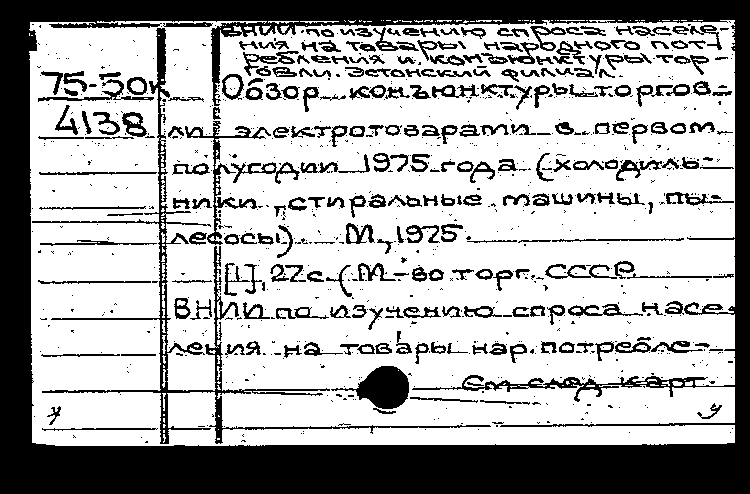 ВНИИ по изучению спроса населе-
ния на товары народного пот-
ребления и конъюнктуры тор-
говли. Эстонский филиал.
75-50к Обзор конъюнктуры торгов-
4138 ли электротоварами в первом
полугодии 1975 года (холодиль-
ники, стиральные машины, пы-
лесосы). М., 1975.
[1], 27с. (М-во торг. СССР.
ВНИИ по изучению спроса насе-
ления на товары нар. потребле-
См след карт.